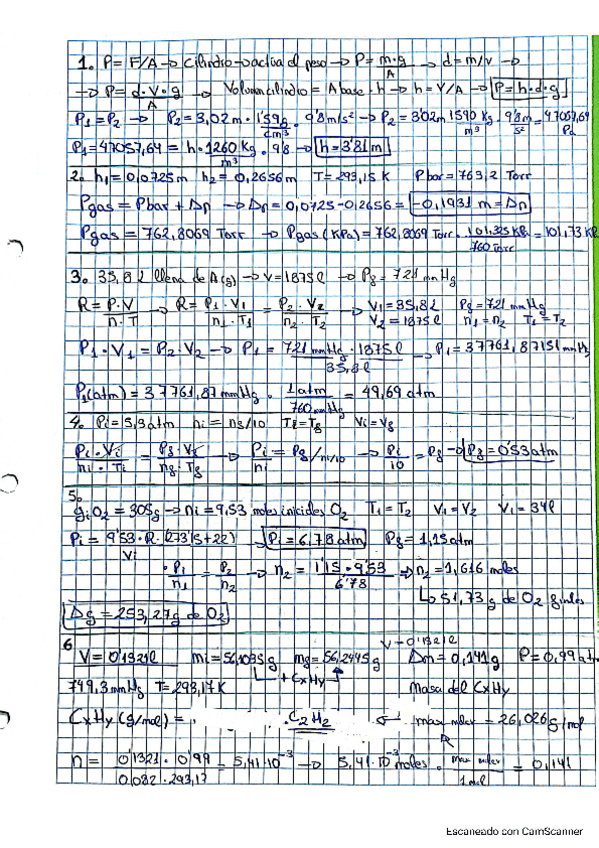 1. P= F/A → Cilindro → actúa el peso → P= m·g/A → d=m/v →
→ P= d·V·g/A → Volumen cilindro = Abase · h → h=V/A → P=h·d·g
P1=P2 → P2=3,02m · 1'59g/cm³ · 9'8m/s² → P2=3'02m 1590 Kg/m³ · 9'8m/s² = 47057,64 Pa
P1=47057,64 = h · 1260 Kg/m³ · 9'8 → h=3'81m
2. h1=0,0725m h2=0,2656m T=293,15K Pbar=763,2 Torr
Pgas = Pbar + Δh → Δh=0,0725-0,2656= -0,1931 m=Δh
Pgas = 762,8069 Torr → Pgas (KPa)=762,8069 Torr · 101,325 KPa/760 Torr = 101,73 KP
3. 35,8 l llena de A(g) → V=1875l → Pf=721 mmHg
R= P·V/n·T → R= P1·V1/n1·T1 = P2·V2/n2·T2 → V1=35,8l Pf=721 mmHg
V2=1875l n1=n2 T1=T2
P1·V1=P2·V2 → P1= 721 mmHg · 1875l/35,8l → P1=37761,8715 mmHg
P1(atm)=37761,87 mmHg · 1atm/760 mmHg = 49,69 atm
4. Pi=5,3atm ni=nf/10 Ti=Tf Vi=Vf
Pi·Vi/ni·Ti = Pf·Vf/nf·Tf → Pi/ni = Pf/ni/10 → Pi/10 = Pf → Pf=0'53atm
5.
gi O2=305g → ni=9,53 moles iniciales O2 T1=T2 V1=V2 V1=34l
Pi= 9'53·R·(273'15+22)/Vi → Pi=6,78atm Pf=1,15atm
· P1/n1 = P2/n2 → n2= 1'15·9'53/6'78 → n2=1,616 moles
↳ 51,73g de O2 finales
Δg = 253,27g de O2
6 V=0'1321l
V=0'1321l mi=56,1035g mf=56,2445g Δm=0,141g P=0,99 atm
↳ + CxHy
749,3mmHg T=293,17K Masa del CxHy
CxHy (g/mol) = C2H2 masa molar = 26,026g/mol
n= 0'1321·0'99/0,082·293,17 = 5,41·10⁻³ → 5,41·10⁻³ moles · masa molar/1mol = 0,141
Escaneado con CamScanner